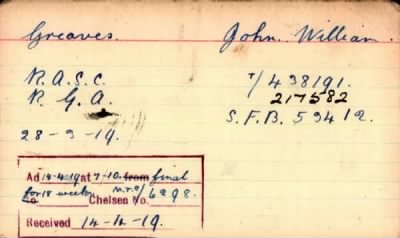 Greaves. John William.
R.A.S.C. T/438191.
R.G.A. 217582
S.F.B. 59412.
28-3-19.
Ad 14-4-19 at 7-10. from final
for 18 weeks M.R.O/
To Chelsea No. 6298.
Received 14-4-19.